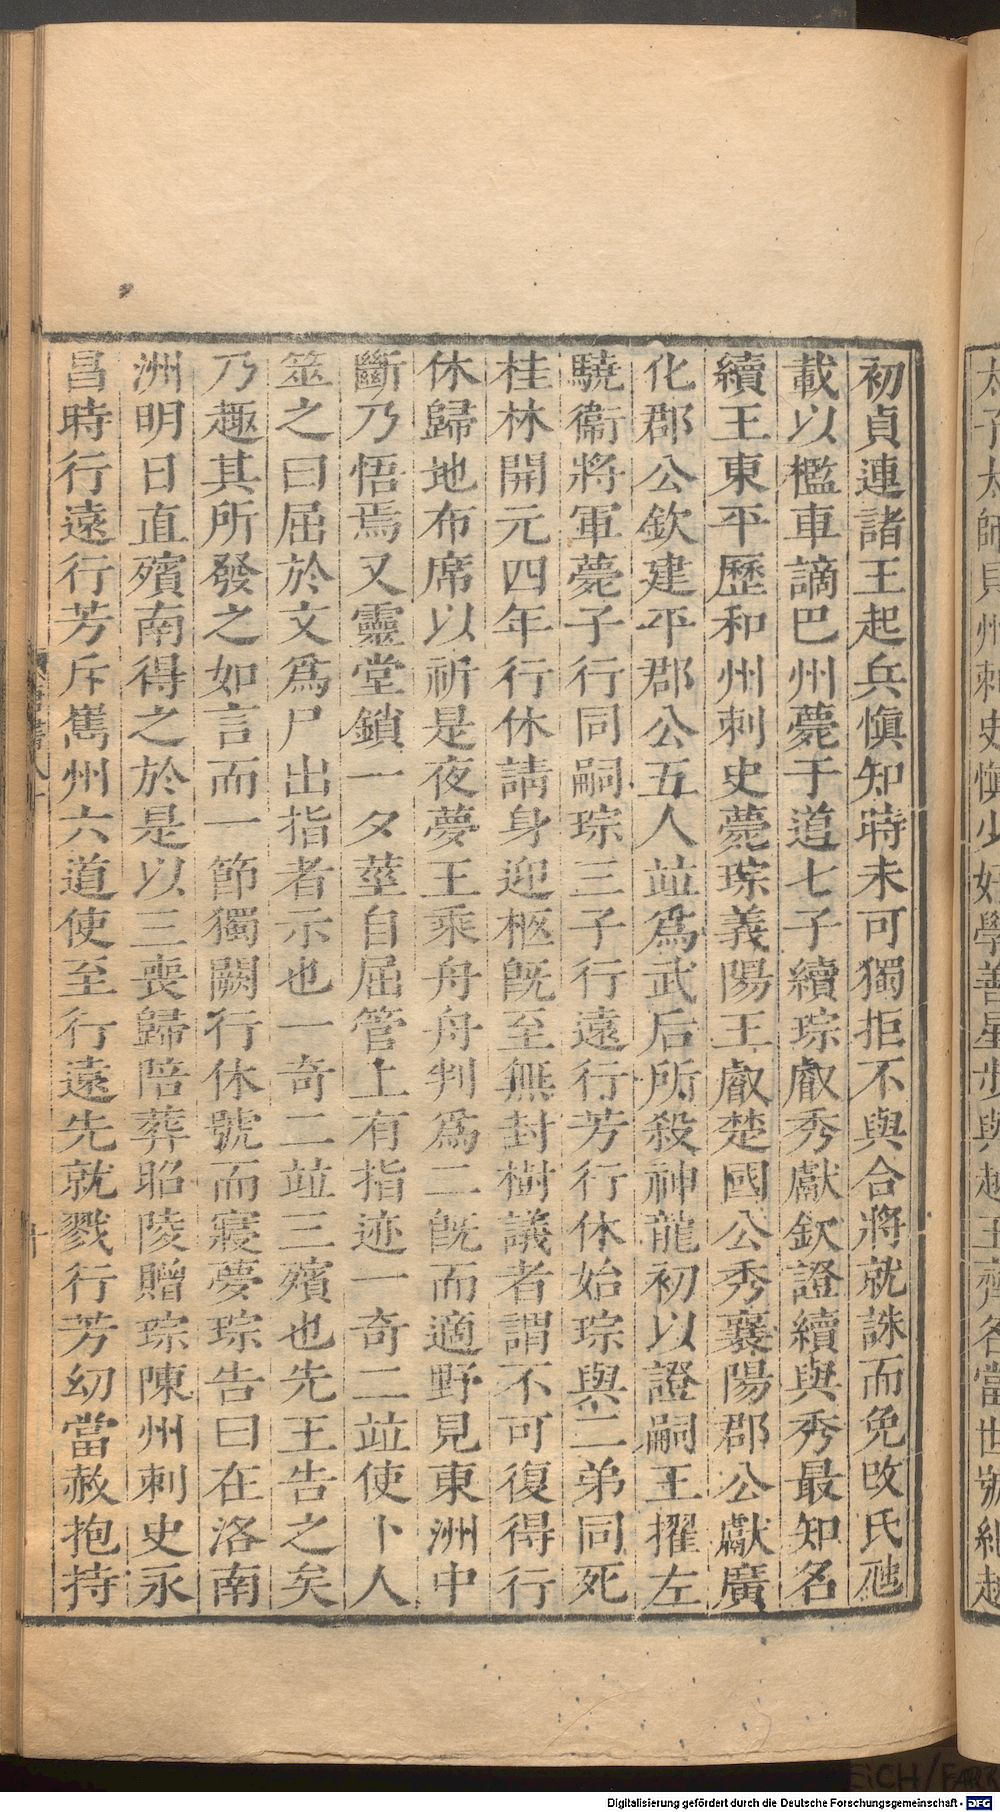 太子太師貝州刺史愼少好學善星步與越王齊名當世號紀越
初貞連諸王起兵愼知時未可獨拒不與合將就誅而免改氏虺
載以檻車謫巴州薨于道七子續琮叡秀獻欽證續與秀最知名
續王東平歷和州刺史薨琮義陽王叡楚國公秀襄陽郡公獻廣
化郡公欽建平郡公五人竝爲武后所殺神龍初以證嗣王擢左
驍衞將軍薨子行同嗣琮三子行遠行芳行休始琮與二弟同死
桂林開元四年行休請身迎柩旣至無封樹議者謂不可復得行
休歸地布席以祈是夜夢王乘舟舟判爲二旣而適野見東洲中
斷乃悟焉又靈堂鎖一夕莖自屈管上有指迹一奇二竝使卜人
筮之曰屈於文爲尸出指者示也一奇二竝三殯也先王告之矣
乃趣其所發之如言而一節獨闕行休號而寢夢琮告曰在洛南
洲明日直殯南得之於是以三喪歸陪葬昭陵贈琮陳州刺史永
昌時行遠行芳斥巂州六道使至行遠先就戮行芳幼當赦抱持
Digitalisierung gefördert durch die Deutsche Forschungsgemeinschaft - DFG